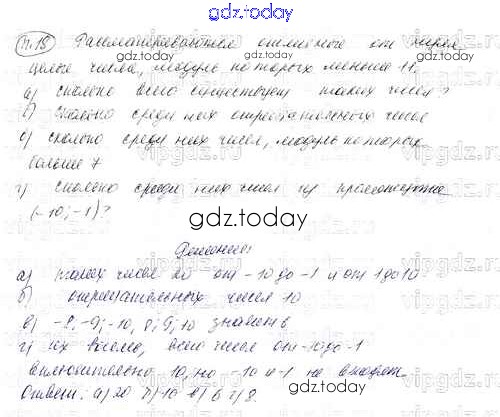 gdz.today
п.18 Рассматриваются отличные от нуля
целые числа, модуль которых меньше 11.
а) сколько всего существует таких чисел?
б) сколько среди них отрицательных чисел
с) сколько среди них чисел, модуль которого
больше 7
г) сколько среди них чисел из промежутка
(-10; -1)?
gdz.today
Решение:
а) таких чисел 20 от -10 до -1 и от 1 до 10
б) отрицательных чисел 10
в) -8, -9; -10, 8; 9; 10 значит 6
г) их восемь, всего чисел от -10 до -1
включительно 10, но -10 и -1 не входят
Ответ: а) 20 б) 10 в) 6 г) 8.
gdz.today